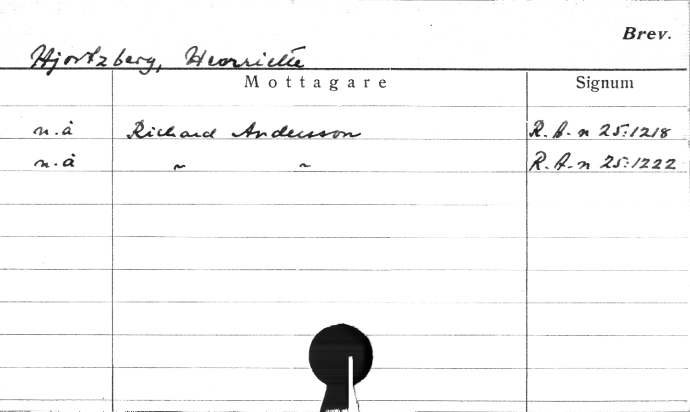 Brev.
Hjortzberg, Henriette
Mottagare Signum
n.å Richard Andersson R.A. n 25:1218
n.å ~ ~ R.A. n 25:1222